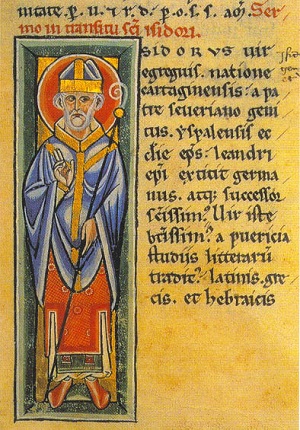 nitate. p. n. i. r. d. p. o. s. s. am. Ser
mo in transitu sci isidori.
SIDORVS uir
egregius. natione
cartaginensis. a pa
tre seueriano geni
tus. yspalensis ec
clie eps. leandri
epi extitit germa
nus. atq; successor
scissim? Uir iste
btissim? a puericia
studiis litterarū
tradit? latinis. gre
cis. et hebraicis